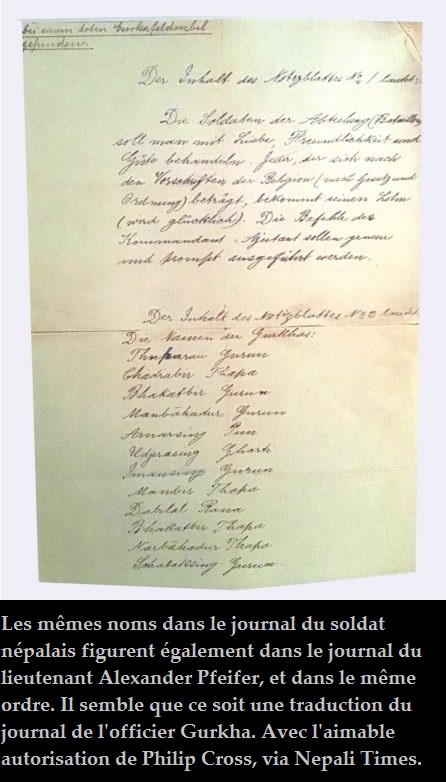 bei einem toten Gurkafeldwebel
gefunden.
Der Inhalt des Notizblattes No 1 lautet:
Die Soldaten der Abteilung (Bataillon)
soll man mit Liebe, Freundlichkeit und
Güte behandeln. Jeder, der sich nach
den Vorschriften der Religion (nach Gesetz und
Ordnung) beträgt, bekommt seinen Lohn
(wird glücklich). Die Befehle des
Kommandant = Ajutant sollen genau
und prompt ausgeführt werden.
Der Inhalt des Notizblattes No 2 lautet:
Die Namen der Gurkhas:
Gurun
Chadrabir Thapa
Bhakatbir Gurun
Manbähadur Gurun
Amarsing Pun
Udjerasing Gharti
Imansing Gurun
Manbir Thapa
Dablal Rana
Bhakatbir Thapa
Narbahadur Thapa
Gurun.
Les mêmes noms dans le journal du soldat
népalais figurent également dans le journal du
lieutenant Alexander Pfeifer, et dans le même
ordre. Il semble que ce soit une traduction du
journal de l'officier Gurkha. Avec l'aimable
autorisation de Philip Cross, via Nepali Times.